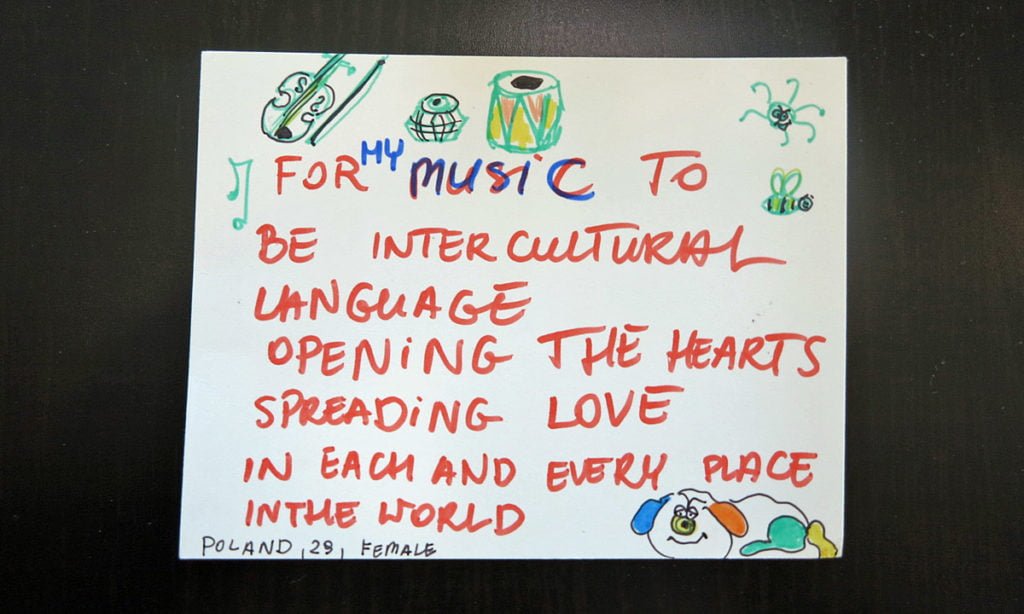 FOR MY MUSIC TO
BE INTERCULTURAL
LANGUAGE
OPENING THE HEARTS
SPREADING LOVE
IN EACH AND EVERY PLACE
IN THE WORLD
POLAND, 29, FEMALE